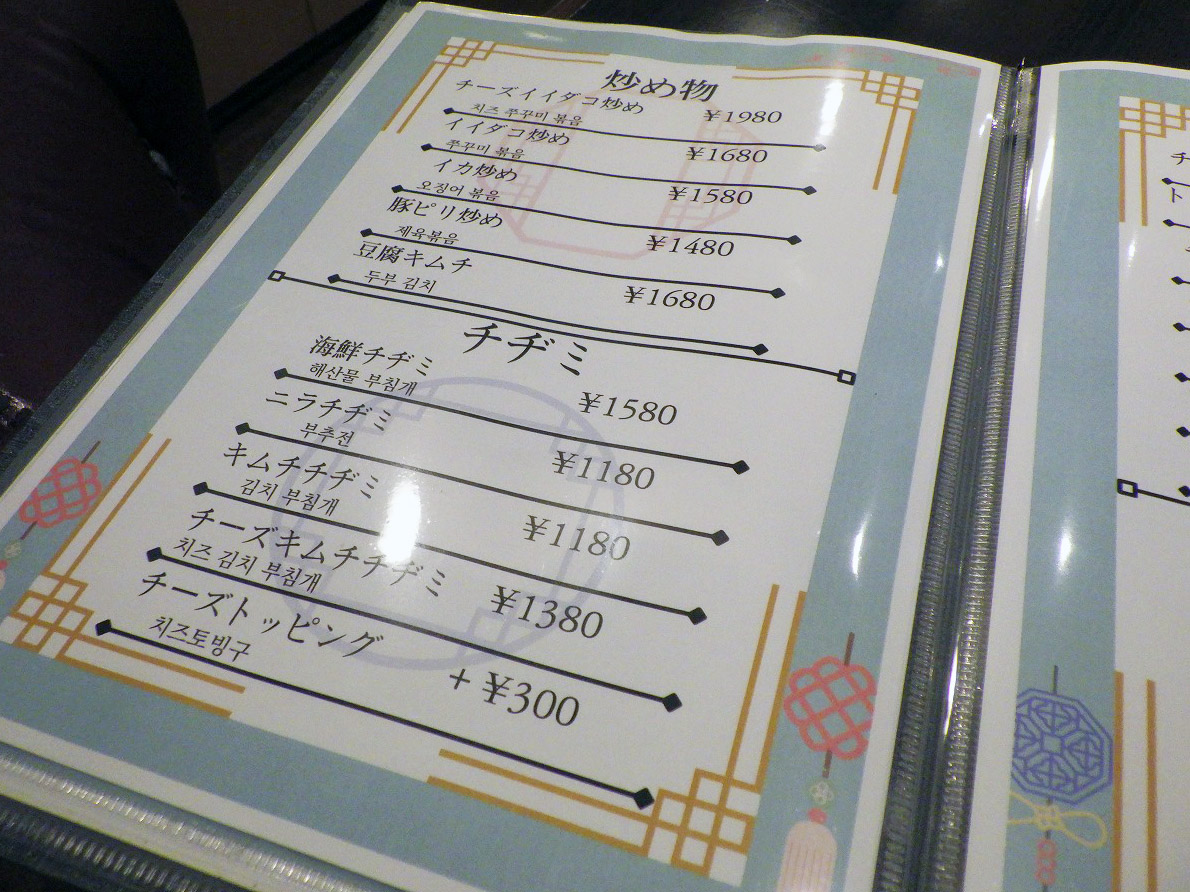 炒め物
チーズイイダコ炒め ¥1980
치즈 쭈꾸미 볶음
イイダコ炒め ¥1680
쭈꾸미 볶음
イカ炒め ¥1580
오징어 볶음
豚ピリ炒め ¥1480
제육볶음
豆腐キムチ ¥1680
두부 김치
チヂミ
海鮮チヂミ ¥1580
해산물 부침개
ニラチヂミ ¥1180
부추전
キムチチヂミ ¥1180
김치 부침개
チーズキムチチヂミ ¥1380
치즈 김치 부침개
チーズトッピング + ¥300
치즈토빙구
チ
ト